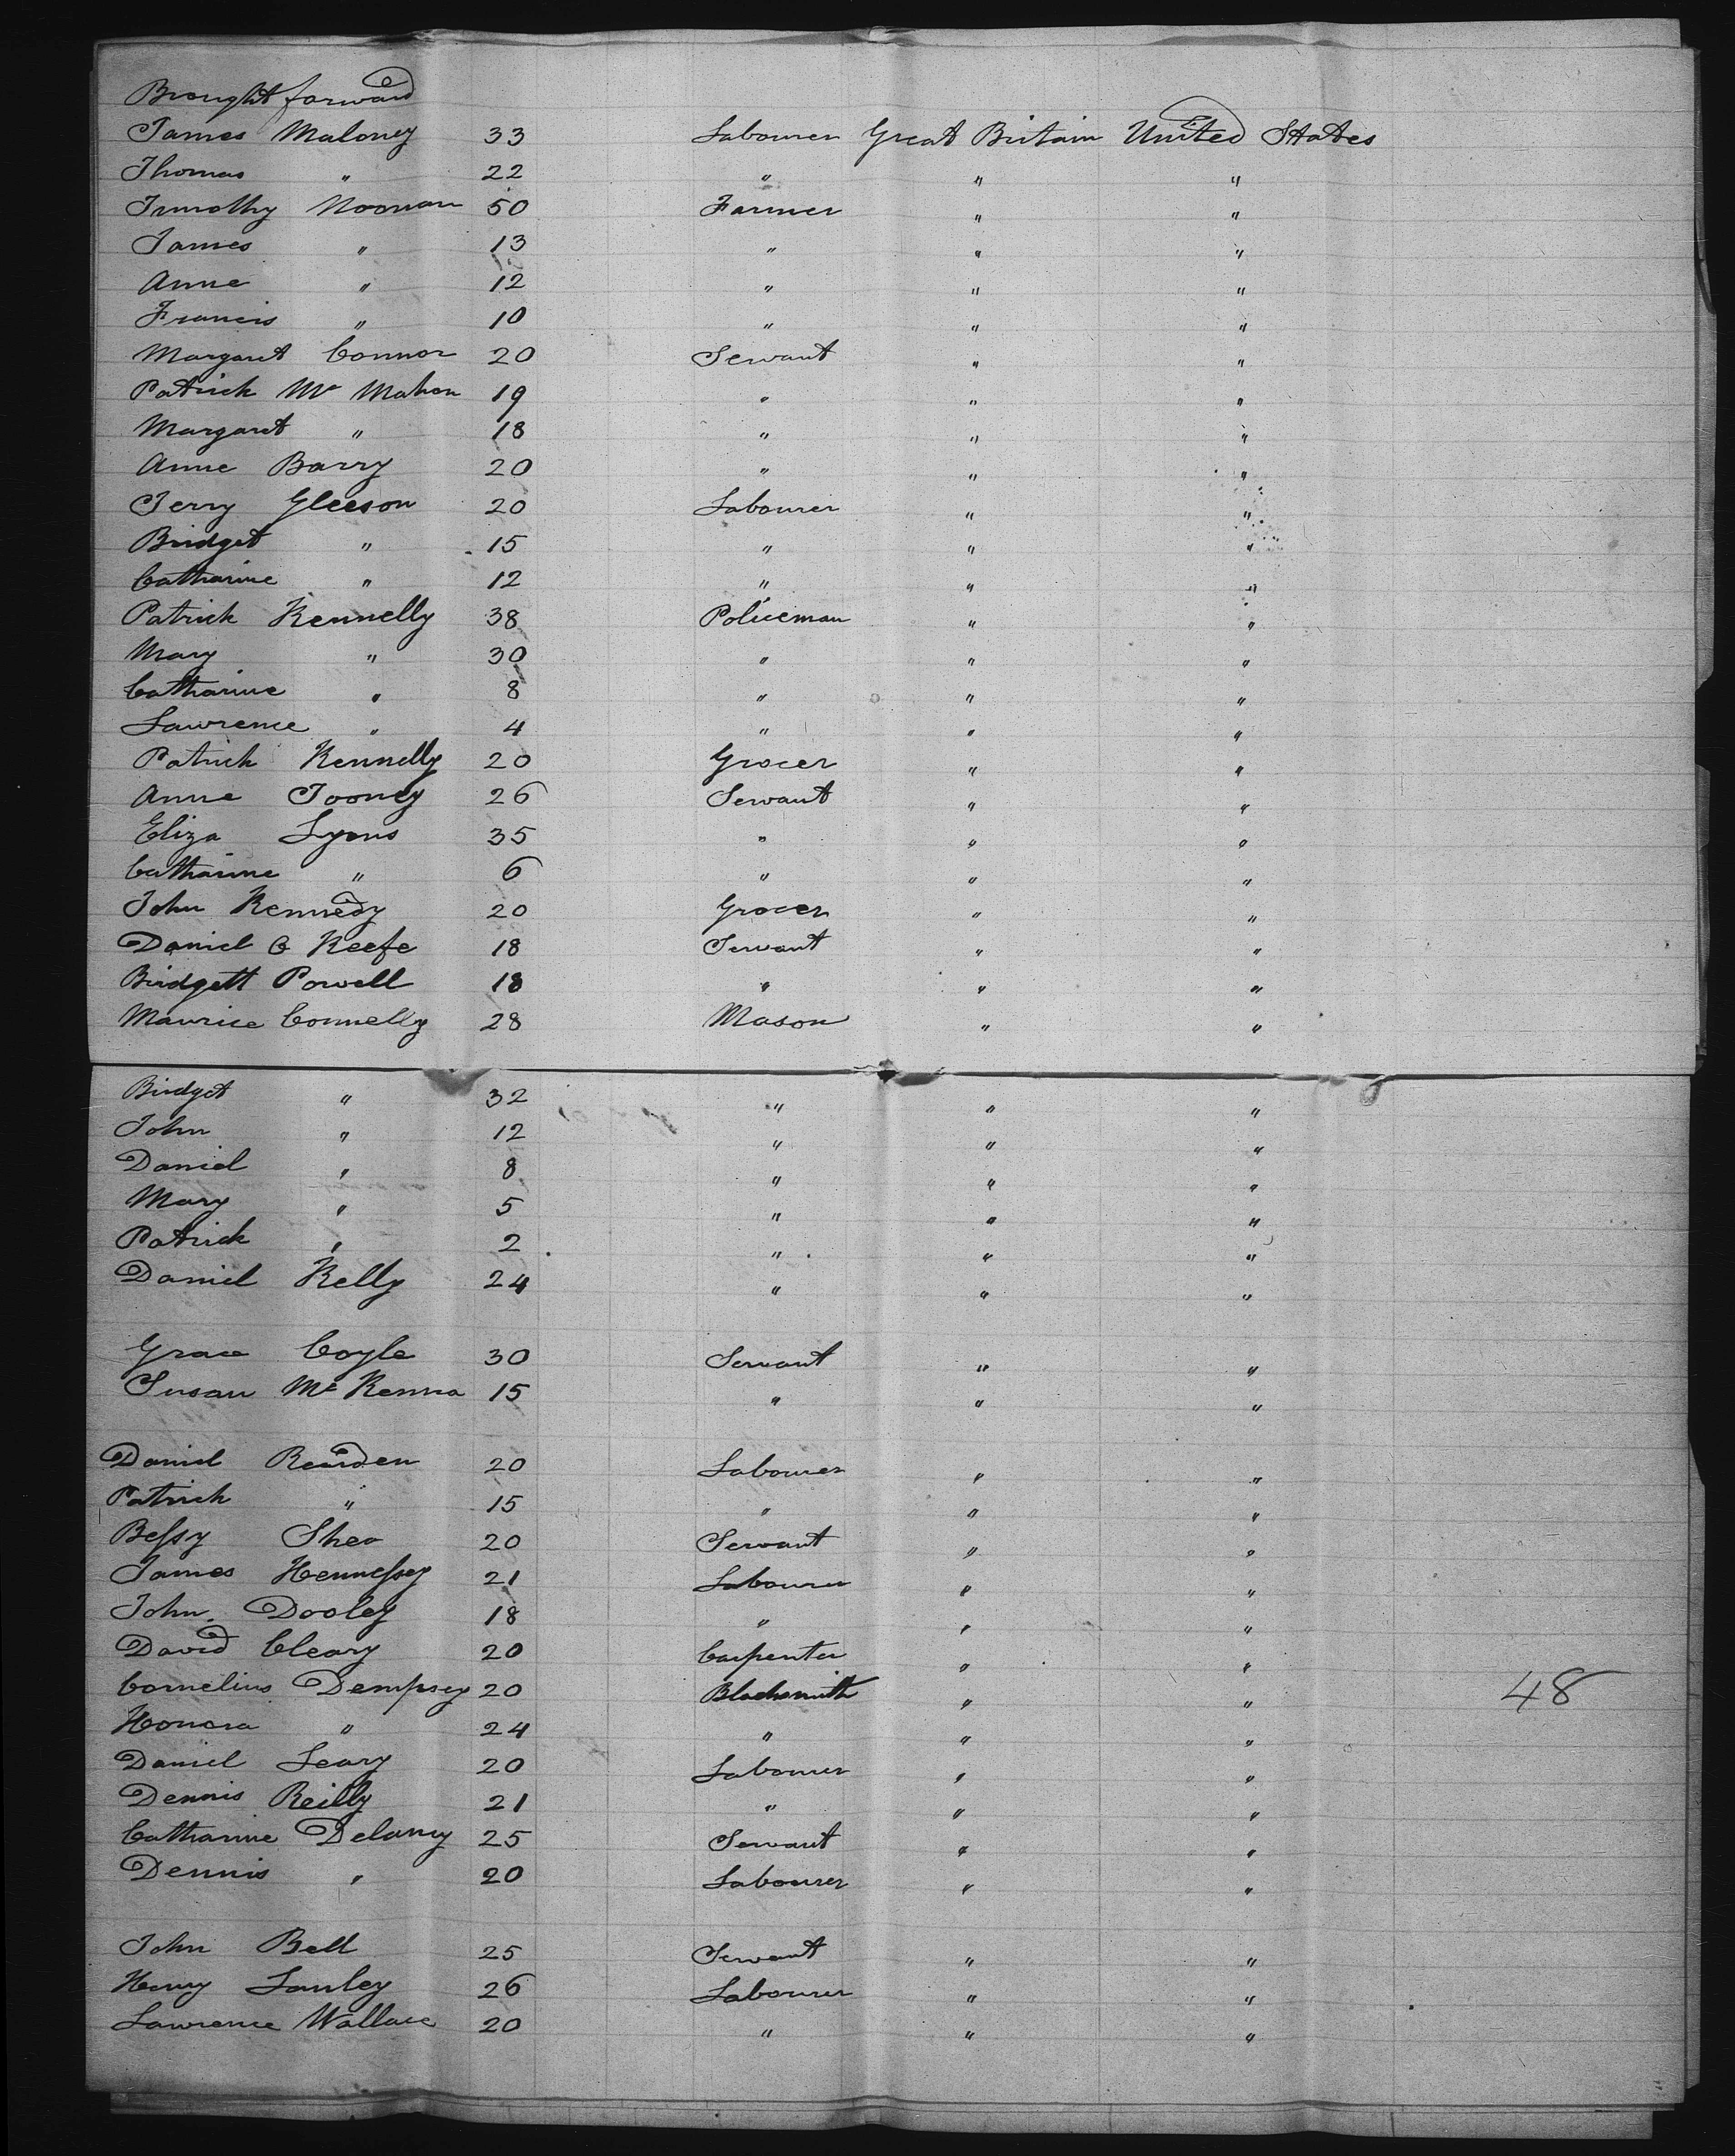 Brought forward
James Maloney 33 Labourer Great Britain United States
Thomas " 22 " " "
Timothy Noonan 50 Farmer " "
James " 13 " " "
Anne " 12 " " "
Francis " 10 " " "
Margaret Connor 20 Servant " "
Patrick Mc Mahon 19 " " "
Margaret " 18 " " "
Anne Barry 20 " " "
Jerry Gleeson 20 Labourer " "
Bridget " 15 " " "
Catharine " 12 " " "
Patrick Kennelly 38 Policeman " "
Mary " 30 " " "
Catharine " 8 " " "
Lawrence " 4 " " "
Patrick Kennelly 20 Grocer " "
Anne Tooney 26 Servant " "
Eliza Lyons 35 " " "
Catharine " 6 " " "
John Kennedy 20 Grocer " "
Daniel O Keefe 18 Servant " "
Bridgett Powell 18 " " "
Maurice Connelly 28 Mason " "
Bridget " 32 " " "
John " 12 " " "
Daniel " 8 " " "
Mary " 5 " " "
Patrick " 2 " " "
Daniel Kelly 24 " " "
Grace Coyle 30 Servant " "
Susan Mc Kenna 15 " " "
Daniel Reardon 20 Labourer " "
Patrick " 15 " " "
Bessy Shea 20 Servant " "
James Hennessey 21 Labourer " "
John Dooley 18 " " "
David Cleary 20 Carpenter " "
Cornelius Dempsey 20 Blacksmith " " 48
Honora " 24 " " "
Daniel Leary 20 Labourer " "
Dennis Reilly 21 " " "
Catharine Delaney 25 Servant " "
Dennis " 20 Labourer " "
John Bell 25 Servant " "
Henry 26 Labourer " "
Lawrence Wallace 20 " " "